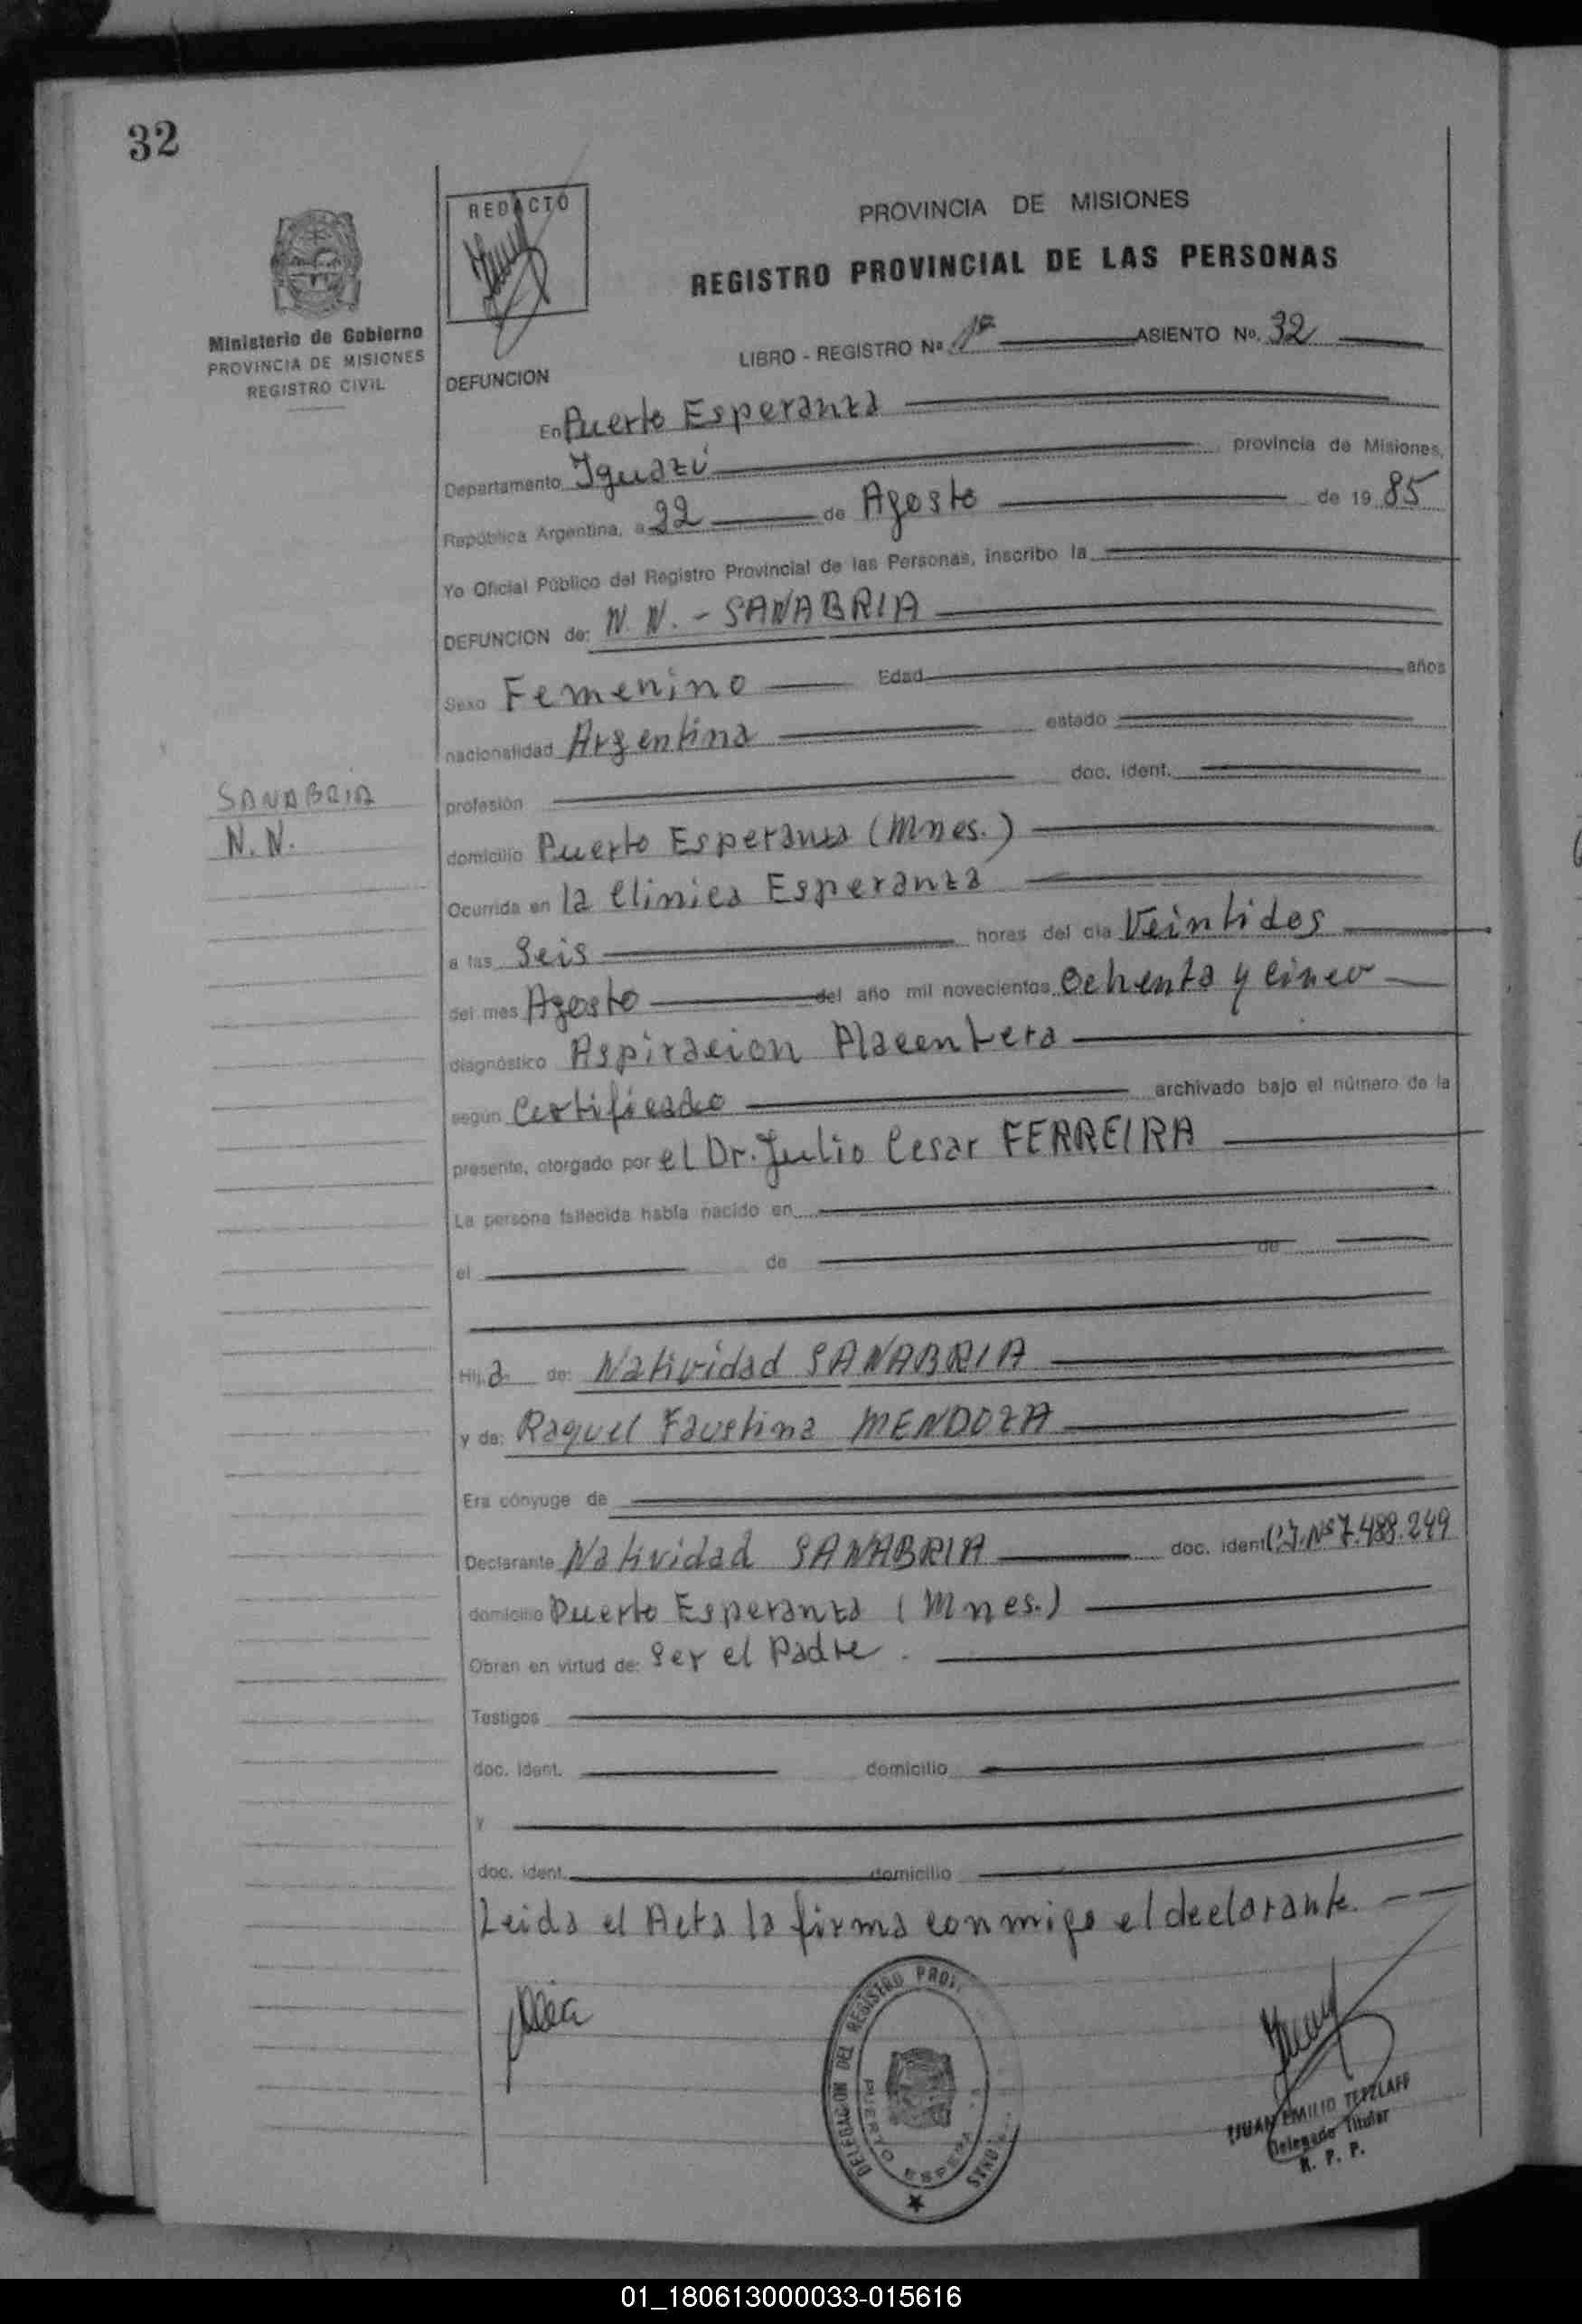 32
REDACTÓ
PROVINCIA DE MISIONES
REGISTRO PROVINCIAL DE LAS PERSONAS
Ministerio de Gobierno
PROVINCIA DE MISIONES
REGISTRO CIVIL
LIBRO - REGISTRO Nº 1º ASIENTO Nº. 32
DEFUNCION
En Puerto Esperanza
Departamento Iguazú provincia de Misiones,
República Argentina, a 22 de Agosto de 19 85
Yo Oficial Público del Registro Provincial de las Personas, inscribo la
DEFUNCION de: N. N. - SANABRIA
Sexo Femenino Edad años
nacionalidad Argentina estado
SANABRIA
N. N.
profesión doc. ident.
domicilio Puerto Esperanza (Mnes.)
Ocurrida en la Clinica Esperanza
a las Seis horas del día Veintidos
del mes Agosto del año mil novecientos Ochenta y cinco
diagnóstico Aspiracion Placentera
según Certificado archivado bajo el número de la
presente, otorgado por el Dr. Julio Cesar FERREIRA
La persona fallecida había nacido en
el de de
Hij a de: Natividad SANABRIA
y de: Raquel Faustina MENDOZA
Era cónyuge de
Declarante Natividad SANABRIA doc. ident C.I. Nº 7.488.249
domicilio Puerto Esperanza (Mnes.)
Obran en virtud de: Ser el Padre.
Testigos
doc. ident. domicilio
y
doc. ident. domicilio
Leida el Acta la firma conmigo el declarante.
DELEGACION DEL REGISTRO PROV.
PUERTO ESPERA
JUAN EMILIO TETZLAFF
Delegado Titular
R. P. P.
01_180613000033-015616